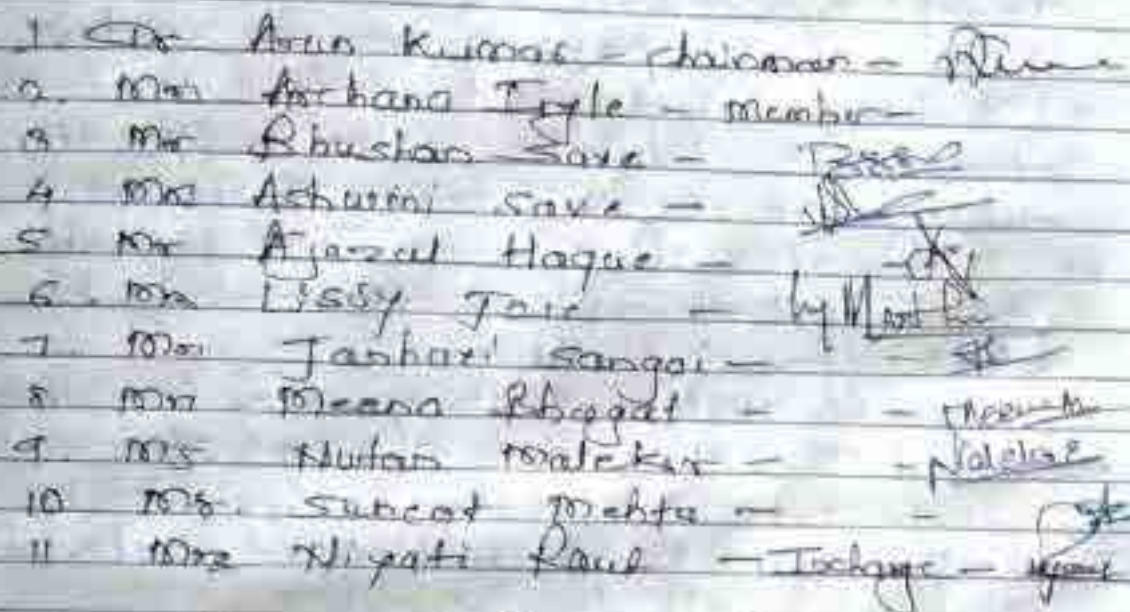 1 Dr Arun Kumar - chairman -
2. Mrs Archana Ingle - member -
3 Mr Bhushan Save -
4 Mrs Ashwini Save -
5. Mr Ajazul Haque -
6. Mrs Lissy Jose -
7. Mrs Tanhavi Sangai -
8. Mrs Meena Bhagat - -
9. Ms Nutan Malekar - -
10 Mr. Suneet Mehta - -
11 Mrs Niyati Raul - Incharge -